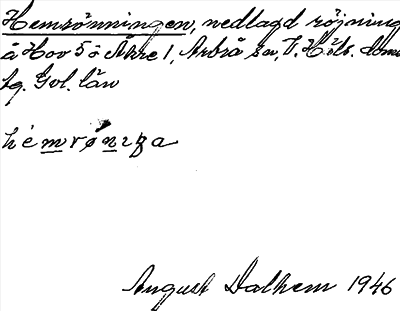 Hemrönningen, nedlagd röjning
å Hov 5 ö Åkre 1, Arbrå sn, V. Häls. doms
tg. Gvl. län
hémrønıŋa
August Dalhem 1946